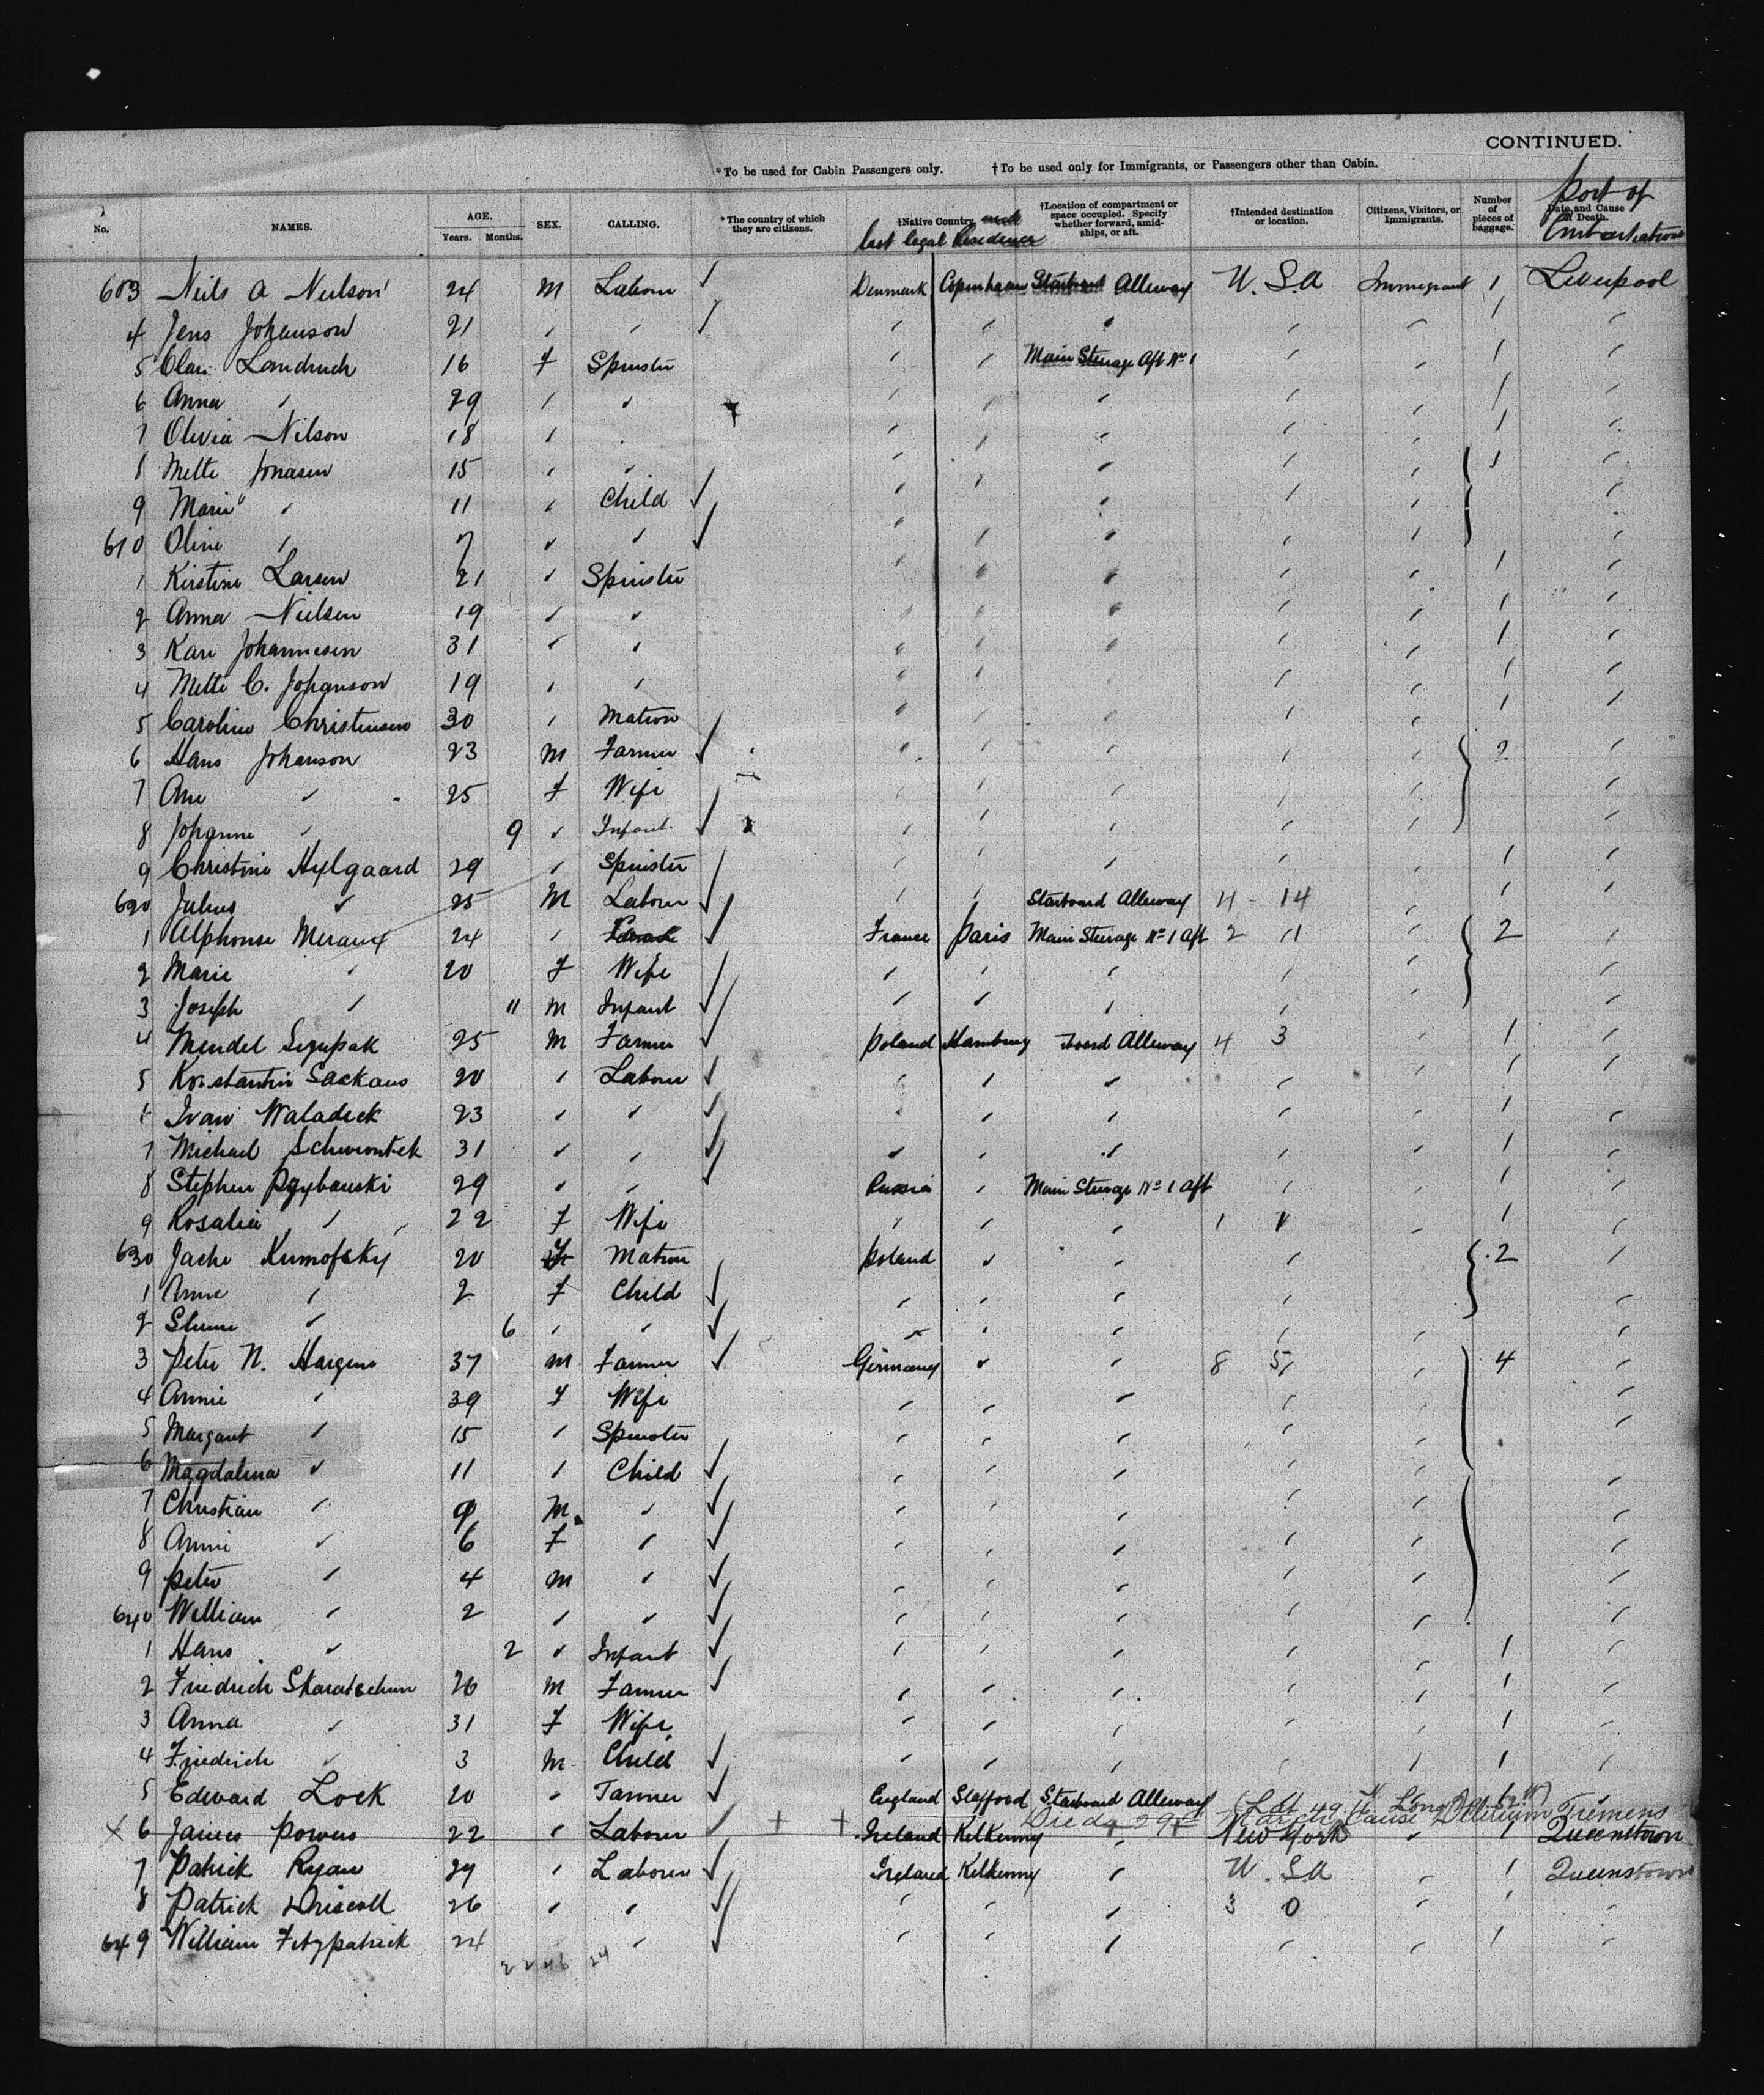 CONTINUED.
*To be used for Cabin Passengers only. †To be used only for Immigrants, or Passengers other than Cabin.
No. NAMES. AGE. Years. Months. SEX. CALLING. *The country of which they are citizens. †Native Country and last legal Residence †Location of compartment or space occupied. Specify whether forward, amidships, or aft. †Intended destination or location. Citizens, Visitors, or Immigrants. Number of pieces of baggage. Date and Cause of Death. Port of Embarkation
603 Neils A Neilson 24 M Labour Denmark Copenhagen Starboard Alleway U.S.A Immigrant 1 Liverpool
4 Jens Johanson 21 " " " " " " " 1 "
5 Landruch 16 F Spinster " " Main Sterage Aft No 1 " " 1 "
6 Anna " 29 " " " " " " " 1 "
7 Olivia Nilson 18 " " " " " " 1 "
8 Mette Jonasen 15 " " " " " " " 1 "
9 Marie " 11 " Child " " " " " "
610 Oline " 7 " " " " " " " "
1 Kirstine Larsen 21 " Spinster " " " " " 1 "
2 Anna Nielsen 19 " " " " " " " 1 "
3 Kare Johannesen 31 " " " " " " " 1 "
4 Mette C. Johanson 19 " " " " " " 1 "
5 Caroline Christensen 30 " Matron " " " " " 1 "
6 Hans Johanson 23 M Farmer " " " " " 2 "
7 Ane " 25 F Wife " " " " " "
8 Johanne " 9 " Infant " " " " " "
9 Christine Hylgaard 29 " Spinster " " " " " 1 "
620 Julius " 25 M Labour " " Starboard Alleway 4 - 14 " 1 "
1 Alphonse Meraux 24 " France Paris Main Sterage No 1 Aft 2 11 " 2 "
2 Marie " 20 F Wife " " " " " "
3 Joseph " 11 M Infant " " " " "
4 Mendel 25 M Farmer Poland Hamburg Alleway 4 3 " 1 "
5 Konstantin Sackaus 20 " Labour " " " " " 1 "
6 Ivan Waladick 23 " " " " " " " 1 "
7 Michael Schwiontek 31 " " " " " " " 1 "
8 Stephen 29 " " Russia " Main Sterage No 1 Aft " " 1 "
9 Rosalia " 22 F Wife " " " 1 1 " 1 "
630 Jache Kumofsky 20 F Matron Poland " " " 2 "
1 Anne " 2 F Child " " " " "
2 " 6 " " " " " " " "
3 Peter N. 37 M Farmer Germany " " 8 5 " 4 "
4 Annie " 39 F Wife " " " " " "
5 Margaret " 15 " Spinster " " " " " "
6 Magdalena " 11 " Child " " " " " "
7 Christian " 9 M " " " " " " "
8 Annie " 6 F " " " " " " "
9 Peter " 4 M " " " " " " "
640 William " 2 " " " " " " " "
1 Hans " 2 " Infant " " " " " 1 "
2 Friedrich Skaratschun 26 M Farmer " " " " " 1 "
3 Anna " 31 F Wife " " " " " 1 "
4 Friedrich " 3 M Child " " " " " 1 "
5 Edward Lock 20 " Tanner England Stafford Starboard Alleway
Died 29th March Cause Delirium Tremens
X 6 James Powers 22 " Labour + + Ireland Kilkenny New York " 1 Queenstown
7 Patrick Ryan 29 " Labour Ireland Kilkenny " U.S.A " 1 Queenstown
8 Patrick Driscoll 26 " " " " " 3 0 " " "
649 William Fitzpatrick 24 " " " " " " " 1 "